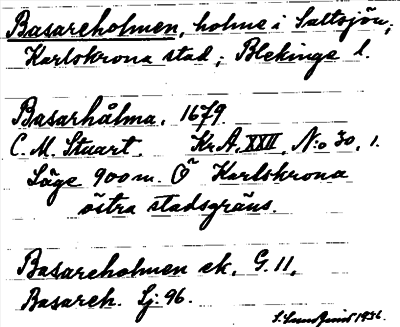 Basareholmen, holme i Saltsjön;
Karlskrona stad; Blekinge l.
Basarhålma, 1679.
C. M. Stuart. Kr.A. XXII, N:o 30, 1.
Läge 900 m. Ö Karlskrona
östra stadsgräns.
Basareholmen ek. G. 11,
Basareh. Sj. 96.
1936.